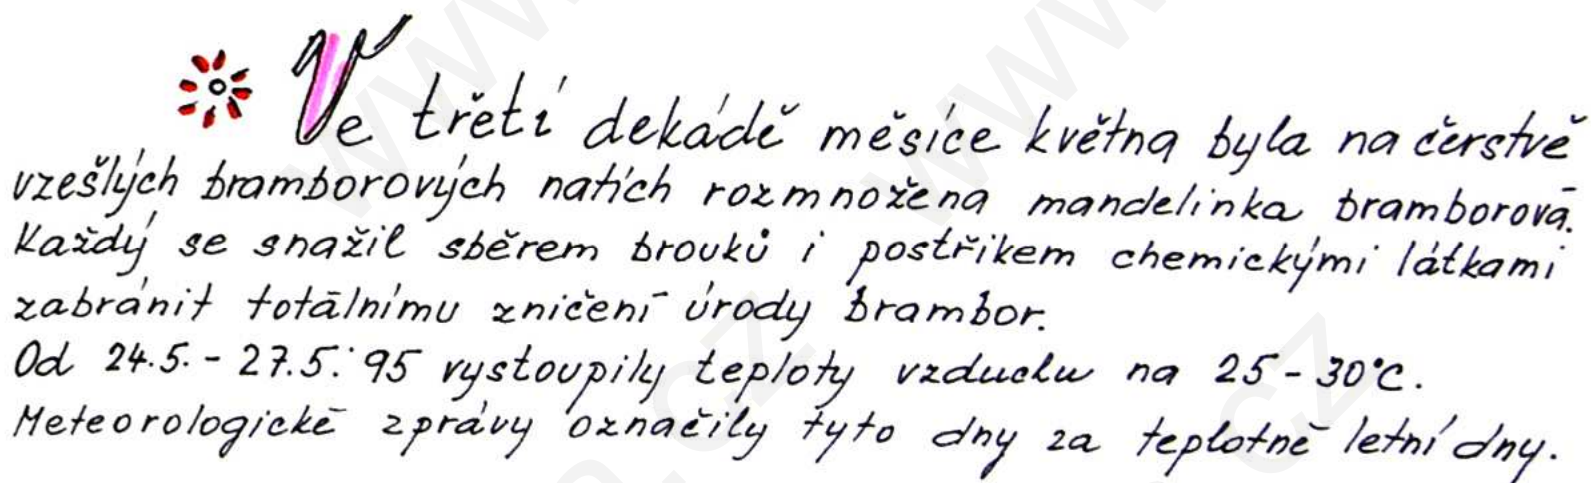 Ve třetí dekádě měsíce května byla na čerstvě
vzešlých bramborových natích rozmnožena mandelinka bramborová.
Každý se snažil sběrem brouků i postřikem chemickými látkami
zabránit totálnímu zničení úrody brambor.
Od 24.5.- 27.5.'95 vystoupily teploty vzduchu na 25 - 30°C.
Meteorologické zprávy označily tyto dny za teplotně letní dny.